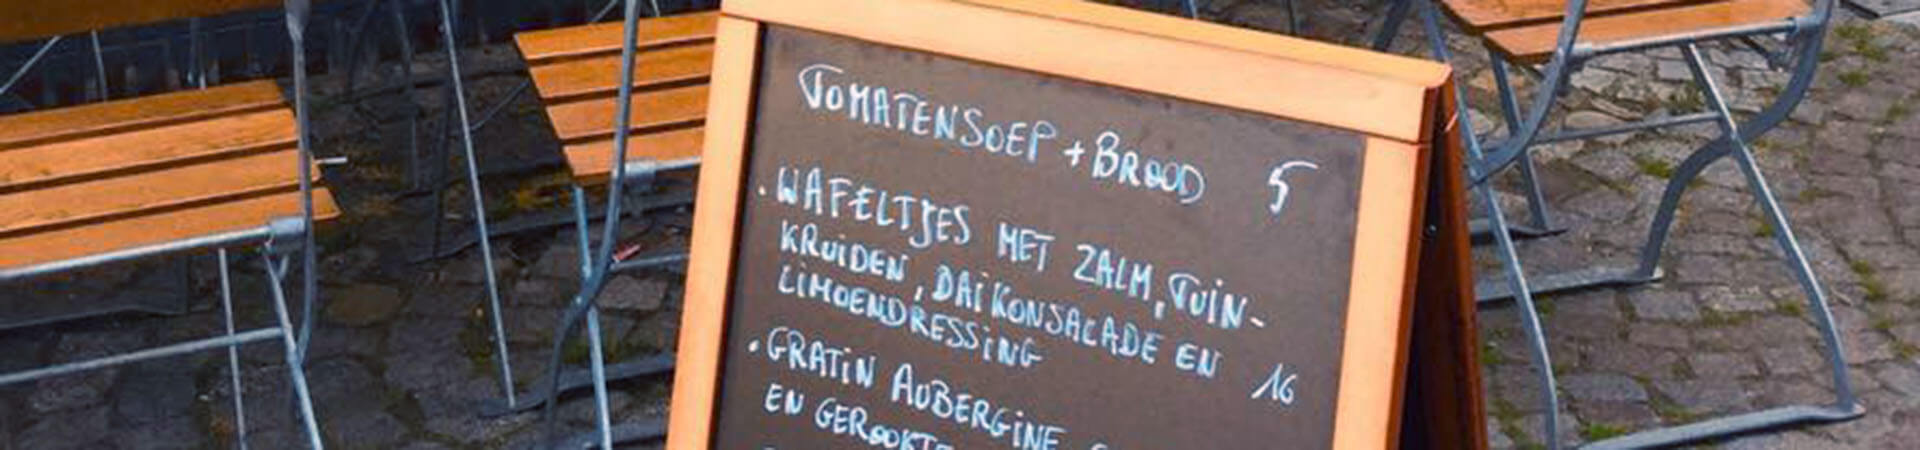 TOMATENSOEP + BROOD 5
. WAFELTJES MET ZALM, TUIN-
KRUIDEN, DAIKONSALADE EN
LIMOENDRESSING 16
. GRATIN AUBERGINE
EN